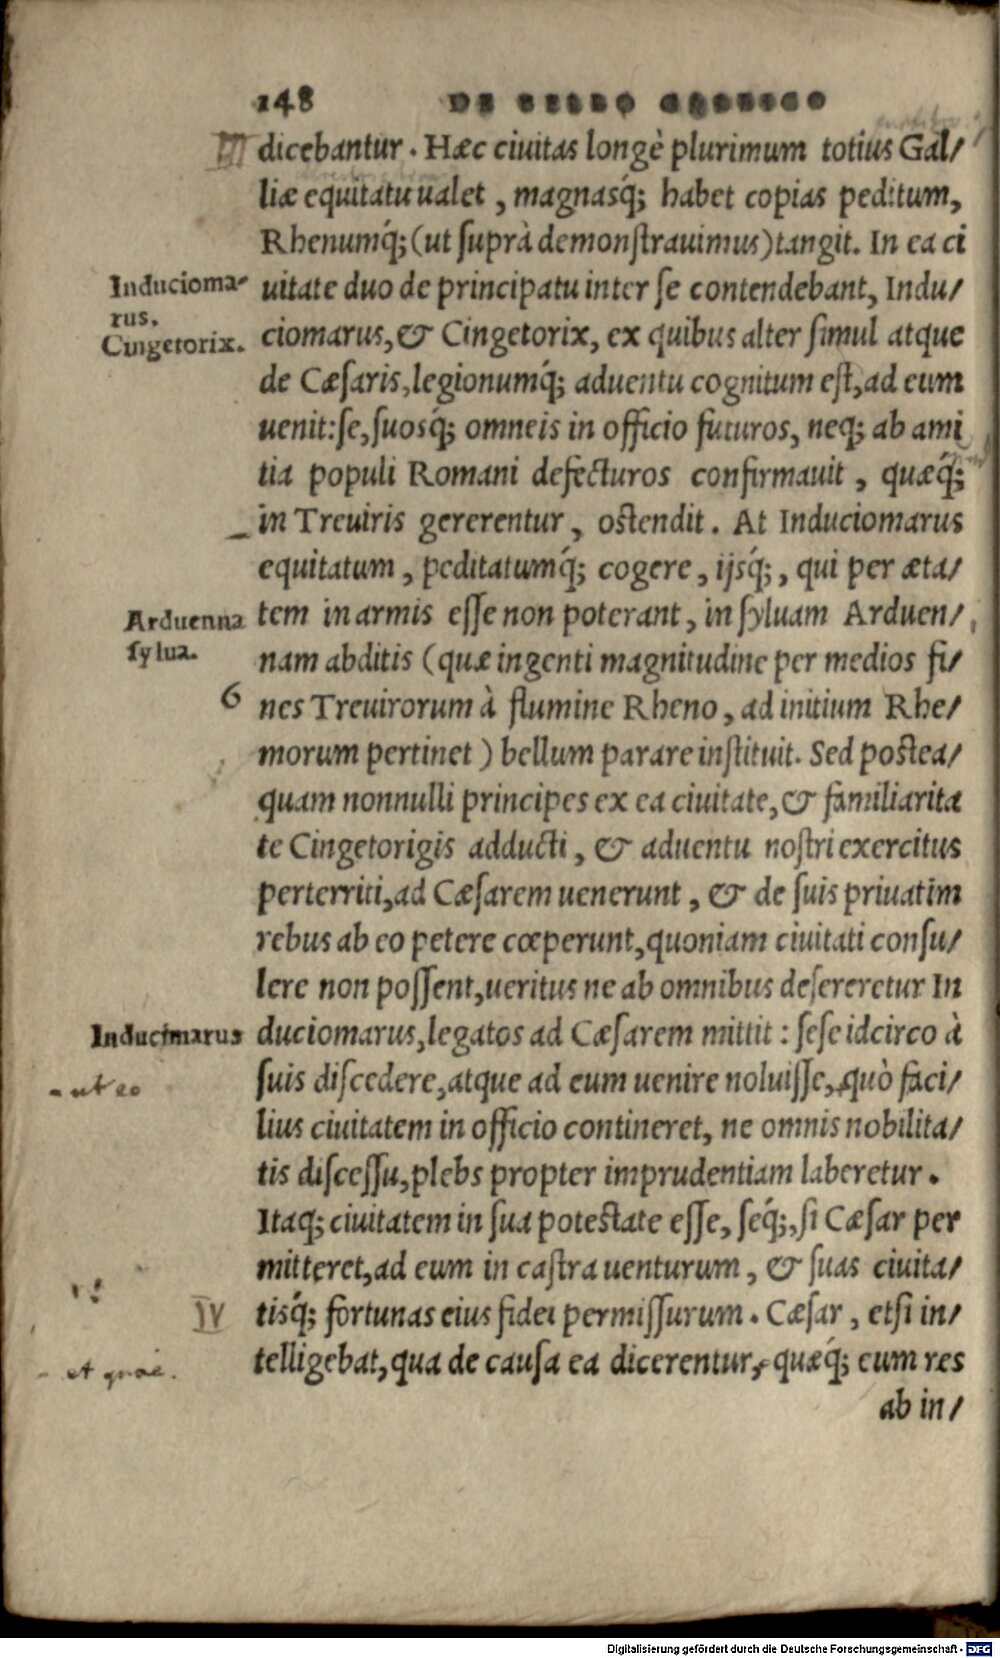 148 DE BELLO GALLICO
III dicebantur. Hæc ciuitas longè plurimum totius Gal/
liæ equitatu ualet, magnasq́; habet copias peditum,
Rhenumq́; (ut suprà demonstrauimus) tangit. In ea ci
Inducioma-
rus.
Cingetorix.
uitate duo de principatu inter se contendebant, Indu/
ciomarus, & Cingetorix, ex quibus alter simul atque
de Cæsaris, legionumq́; aduentu cognitum est, ad eum
uenit: se, suosq́; omneis in officio futuros, neq; ab ami
tia populi Romani defecturos confirmauit, quæq́;
in Treuiris gererentur, ostendit. At Induciomarus
equitatum, peditatumq́; cogere, ijsq́;, qui per æta/
Arduenna
sylua.
tem in armis esse non poterant, in syluam Arduen/
nam abditis (quæ ingenti magnitudine per medios fi/
6 nes Treuirorum à flumine Rheno, ad initium Rhe/
morum pertinet) bellum parare instituit. Sed postea/
quam nonnulli principes ex ea ciuitate, & familiarita
te Cingetorigis adducti, & aduentu nostri exercitus
perterriti, ad Cæsarem uenerunt, & de suis priuatim
rebus ab eo petere cœperunt, quoniam ciuitati consu/
lere non possent, ueritus ne ab omnibus desereretur In
Inducimarus
duciomarus, legatos ad Cæsarem mittit: sese idcirco à
- ut eo
suis discedere, atque ad eum uenire noluisse, quò faci/
lius ciuitatem in officio contineret, ne omnis nobilita/
tis discessu, plebs propter imprudentiam laberetur.
Itaq; ciuitatem in sua potestate esse, seq́;, si Cæsar per
mitteret, ad eum in castra uenturum, & suas ciuita/
IV tisq́; fortunas eius fidei permissurum. Cæsar, etsi in/
- et quae.
telligebat, qua de causa ea dicerentur, quæq́; eum res
ab in/
Digitalisierung gefördert durch die Deutsche Forschungsgemeinschaft - DFG